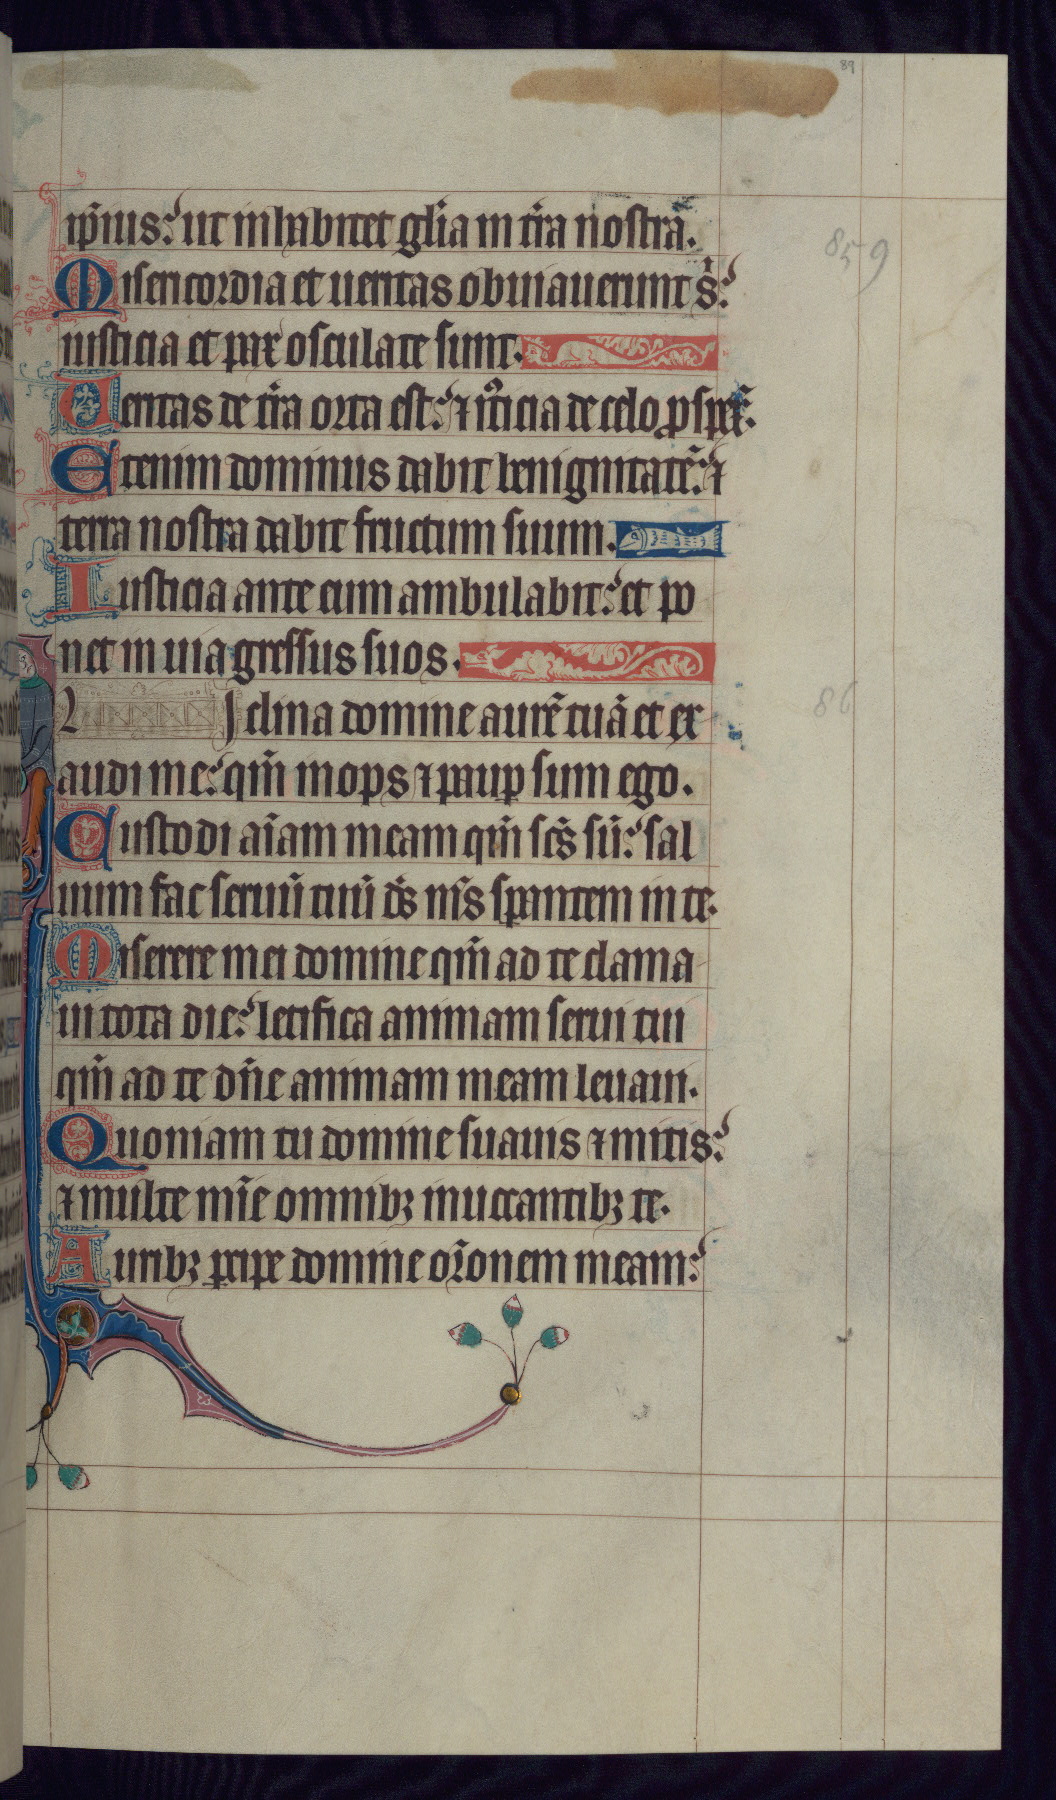 89
ip̄ius: ut inhabitet gl̄ia in t̄ra nostra.
859
Misericordia et ueritas obuiauerunt s̄:
iusticia et pax osculate sunt.
Ueritas de t̄ra orta est: ⁊ iusticia de celo ꝓspex̄.
Etenim dominus dabit benignitatē: ⁊
terra nostra dabit fructum suum.
Iusticia ante eum ambulabit: et po
net in uia gressus suos.
Iclina domine aurē tuā et ex
86
audi me: qm̄ inops ⁊ paup̲ sum ego.
Custodi aīam meam qm̄ sc̄s sū: sal
uum fac seruū tuū ds̄ ms̄ sp̲antem in te.
Miserere mei domine qm̄ ad te clama
ui tota die: letifica animam serui tui
qm̄ ad te dn̄e animam meam leuaui.
Quoniam tu domine suauis ⁊ mitis:
⁊ multe mīe omnibꝫ inuocantibꝫ te.
Auribꝫ p̲cipe domine or̄onem meam: